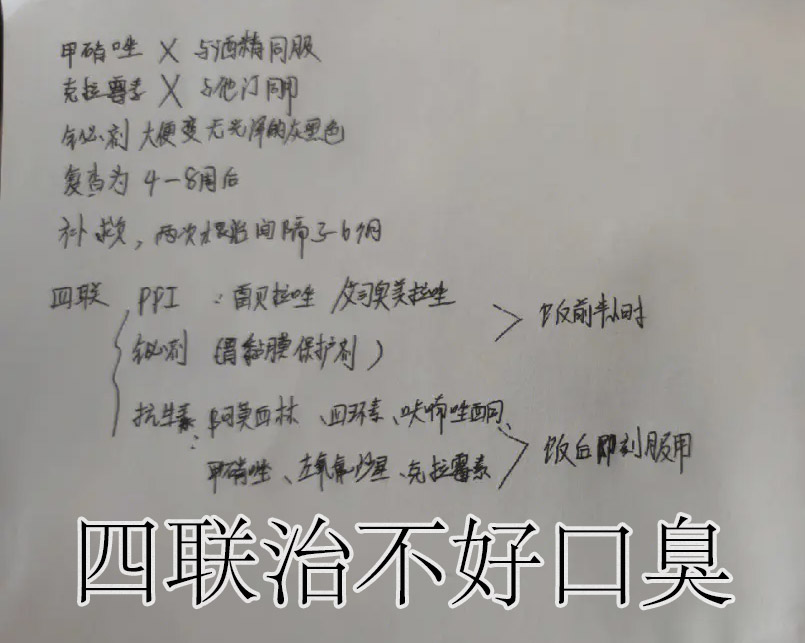 甲硝唑 X 与酒精同服
克拉霉素 X 与他汀同用
铋剂 大便变无光泽的灰黑色
复查为 4-8周后
补救，两次根治间隔3-6个月
四联 PPI：雷贝拉唑/艾司奥美拉唑 > 饭前半小时
铋剂（胃黏膜保护剂）
抗生素：阿莫西林、四环素、呋喃唑酮、
甲硝唑、左氧氟沙星、克拉霉素 > 饭后即刻服用
四联治不好口臭